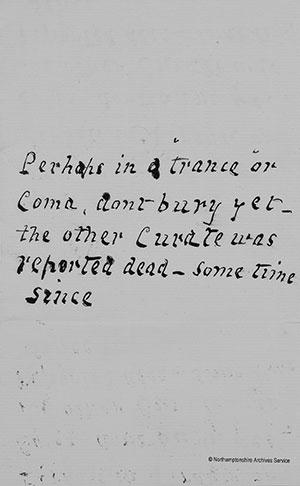 Perhaps in a "trance" or
Coma, dont bury yet-
the other Curate was
reported dead - some time
since
© Northamptonshire Archives Service